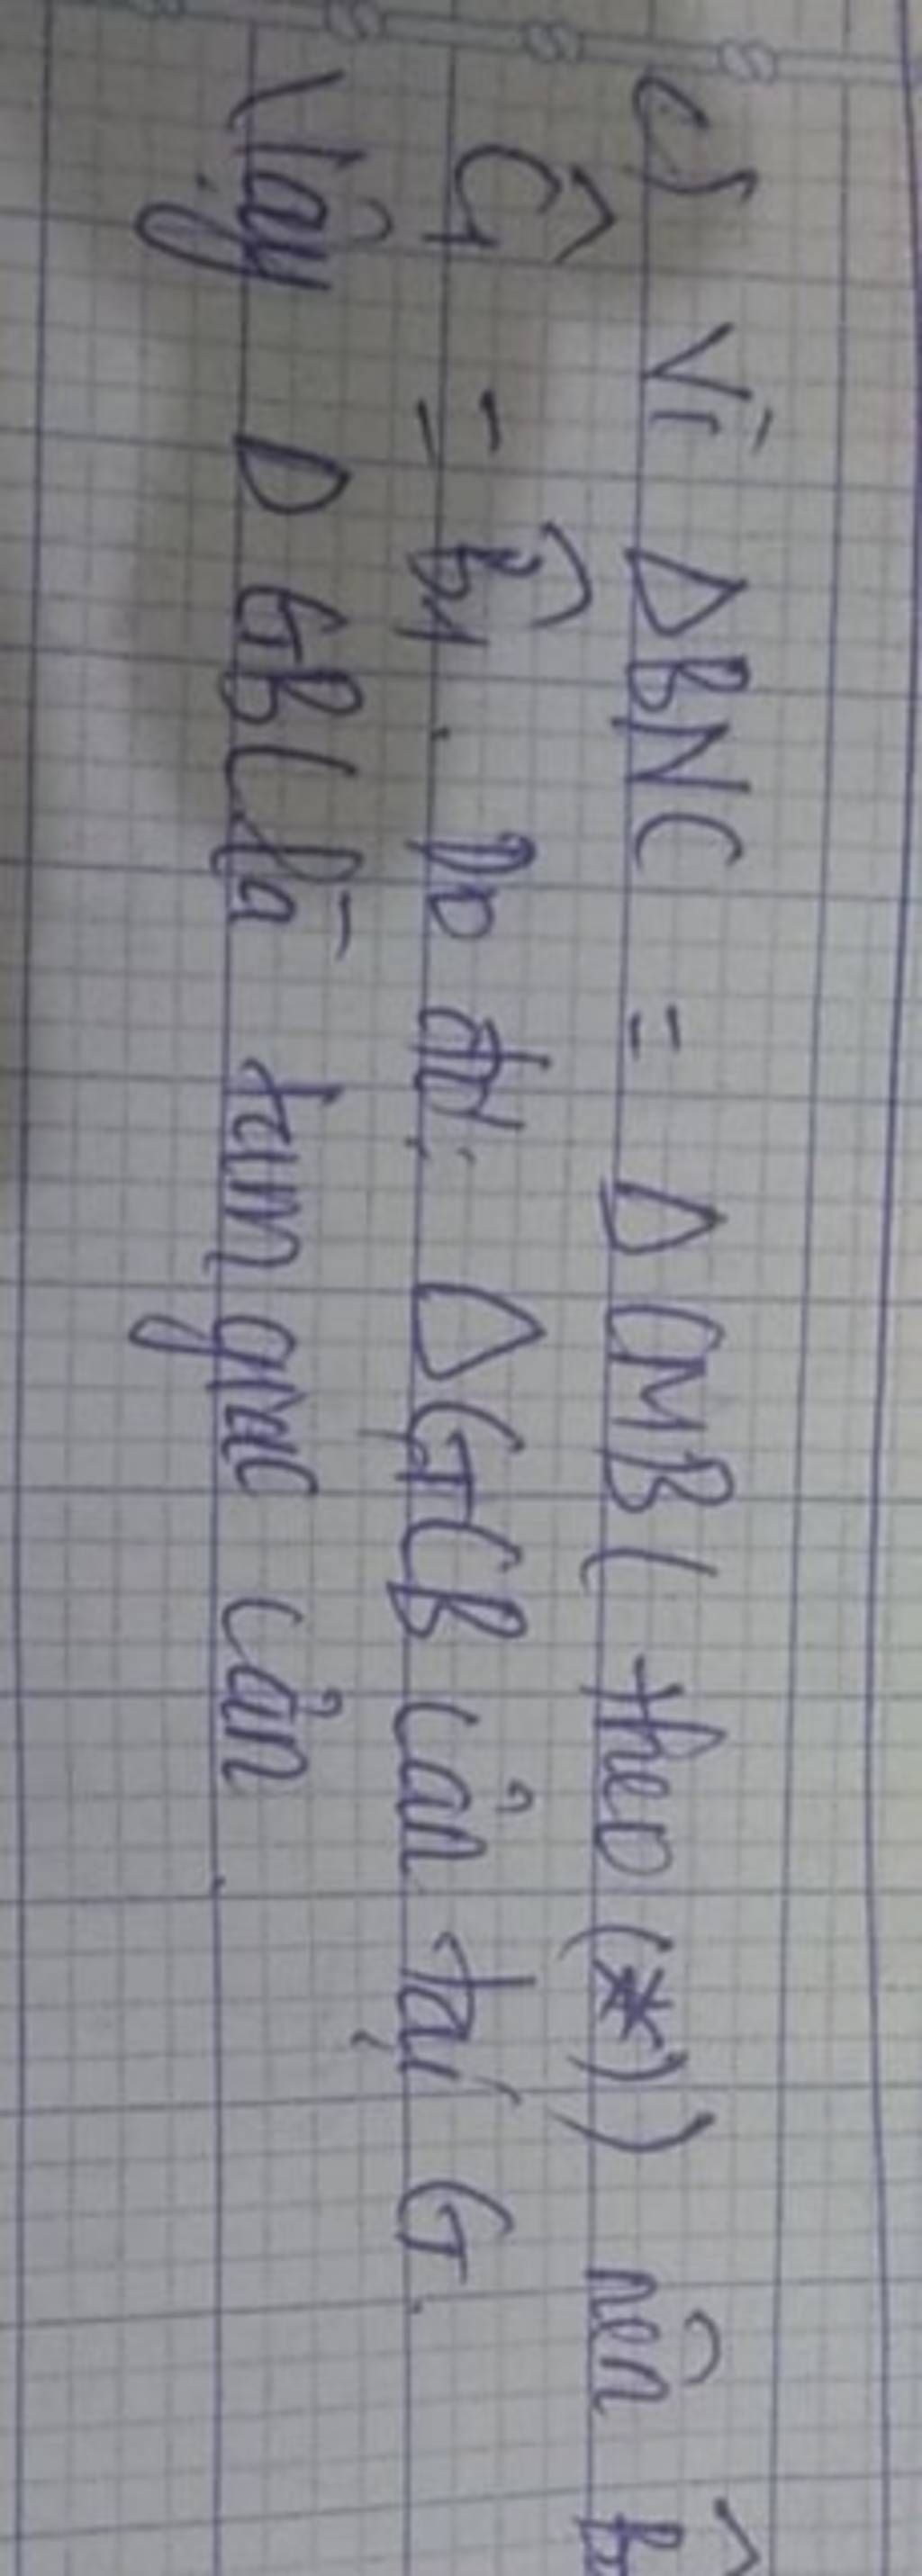 c) Vì ΔBNC = ΔCMB (theo (*)) nên
Ĉ₁ = B̂₁. Do đó: ΔGCB cân tại G.
Vậy ΔGBC là tam giác cân